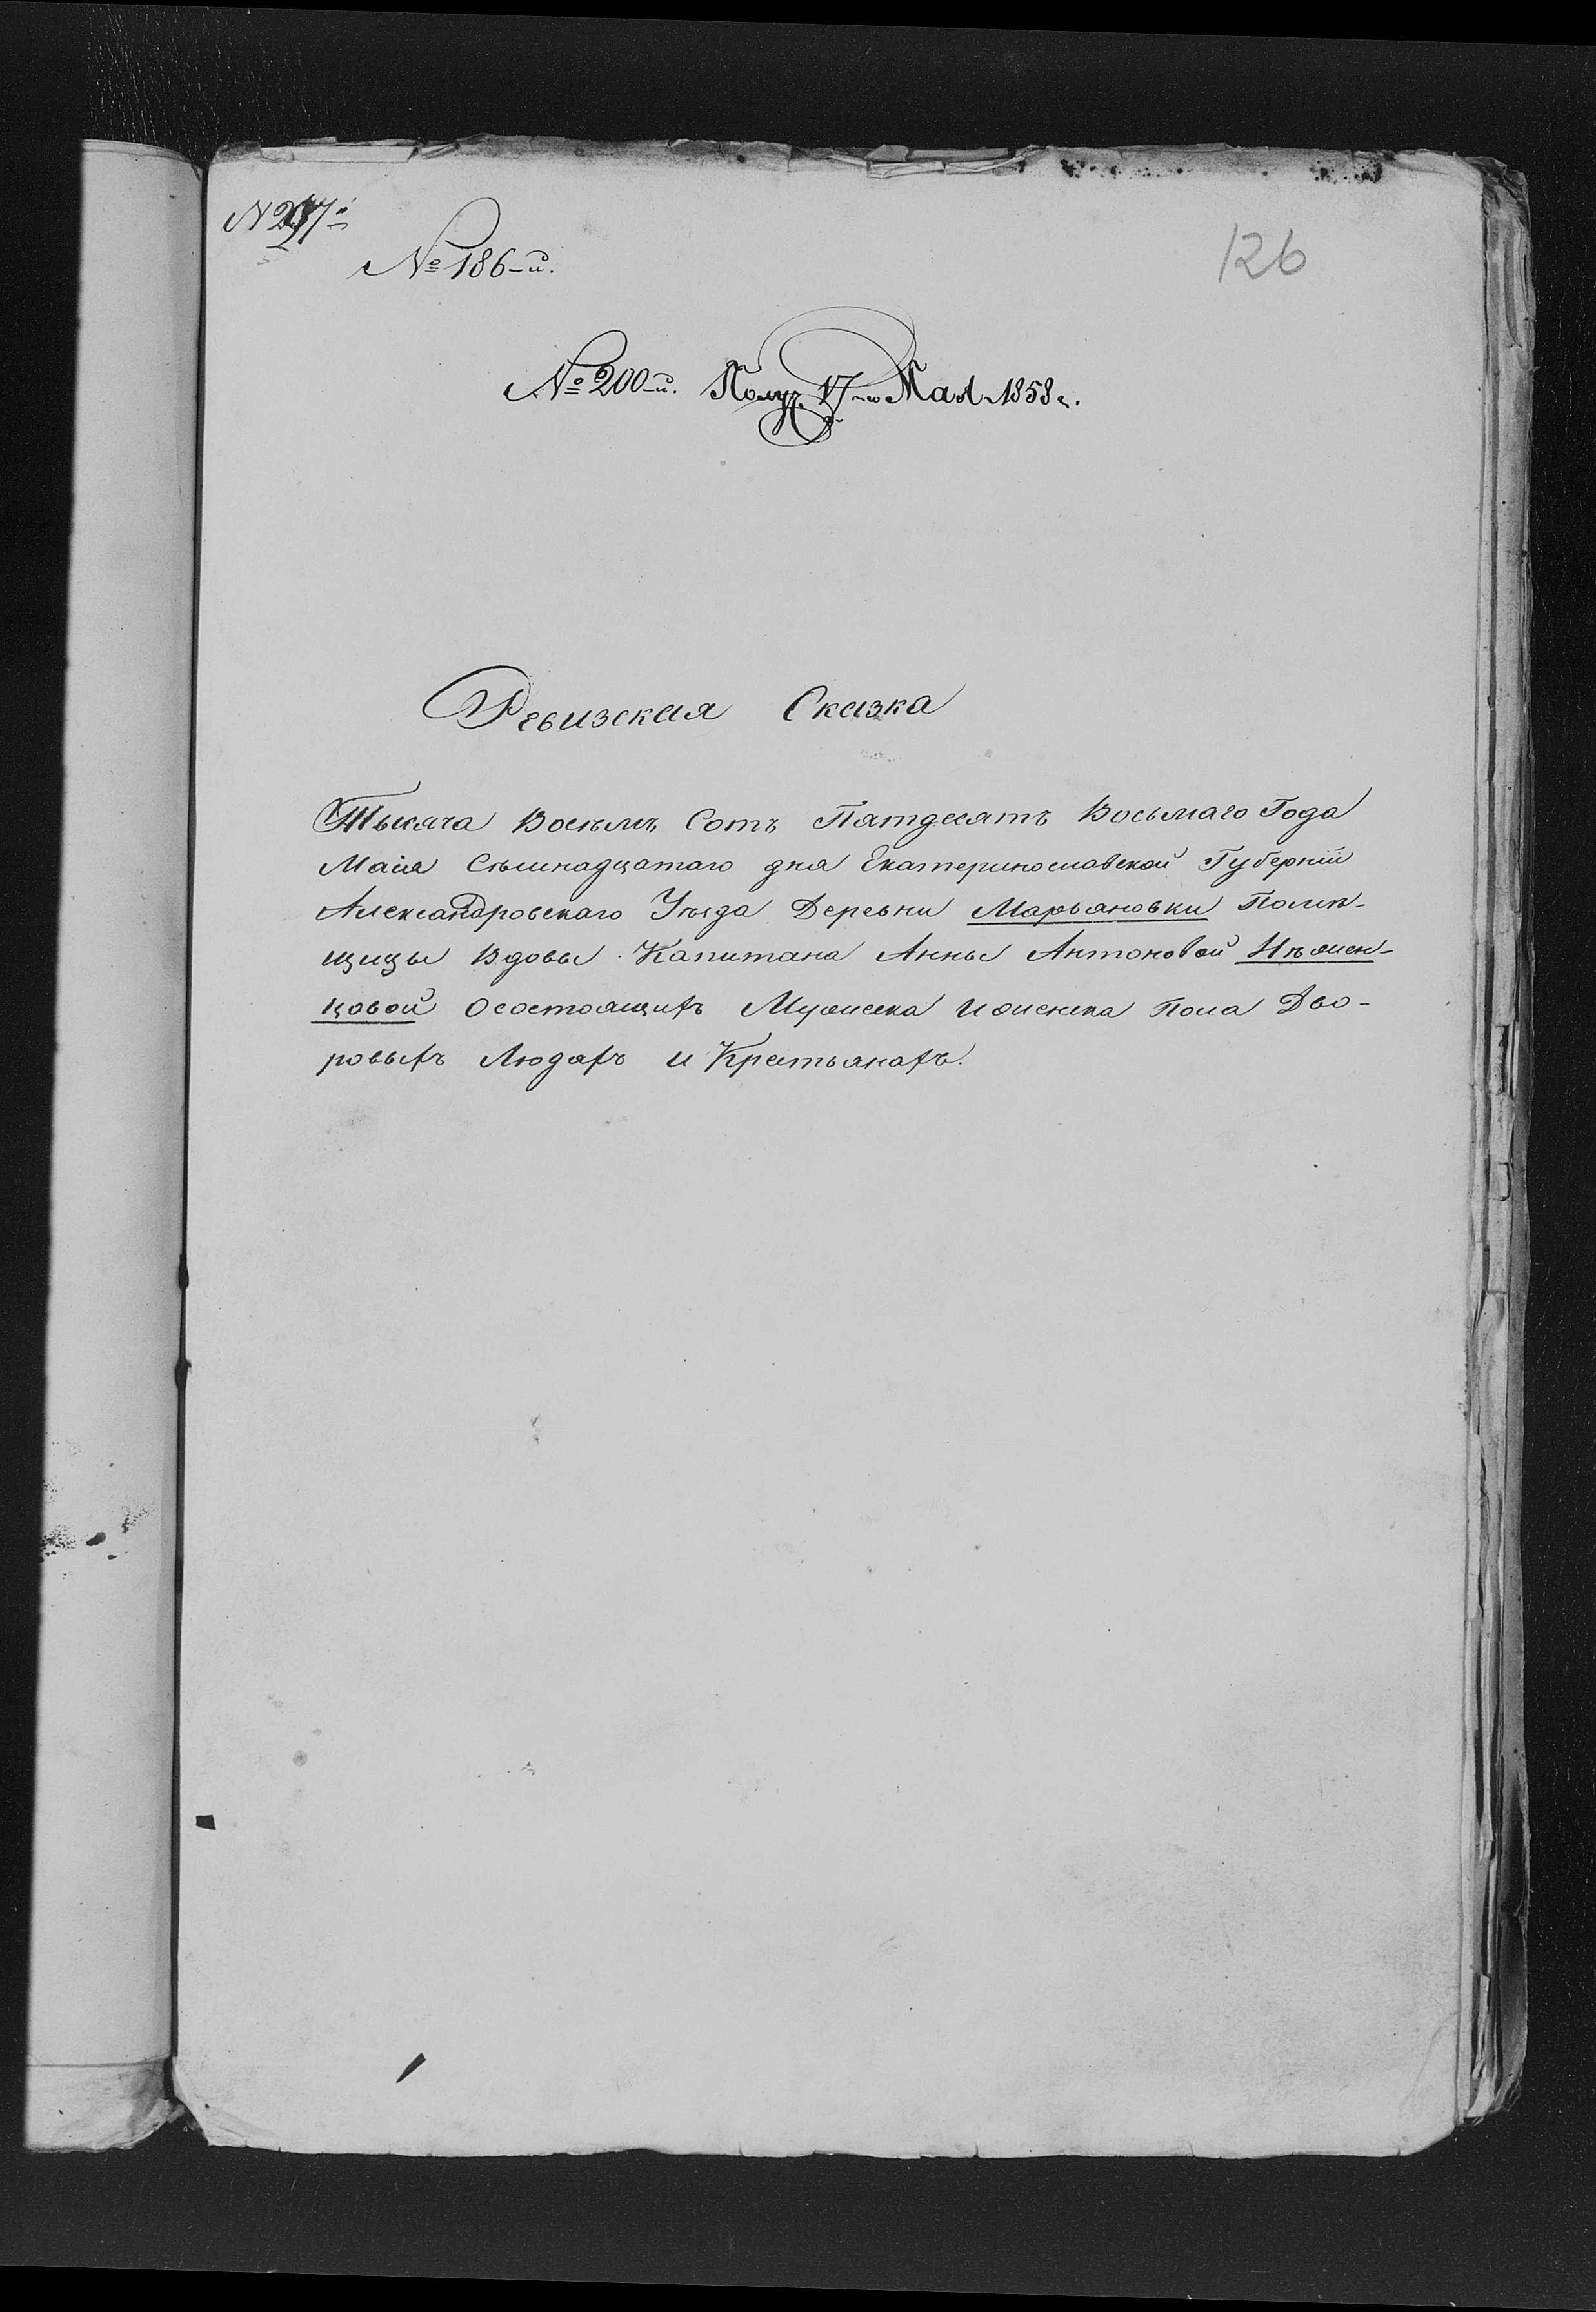 № 186-й.
126
№ 200-й. Получ. 17-го Мая 1858 г.
Ревизская Сказка
Тысяча Восемъ Сотъ Пятдесятъ Восьмаго Года
Маія Съминадцатаго дня Екатеринославской Губерніи
Александровскаго Уѣзда Деревни Марьяновки Помѣ-
щицы Вдовы Капитана Анны Антоновой Нѣмен-
цовой О состоящихъ Мужеска и женска Пола Дво-
ровыхъ Людяхъ и Крестьянахъ.